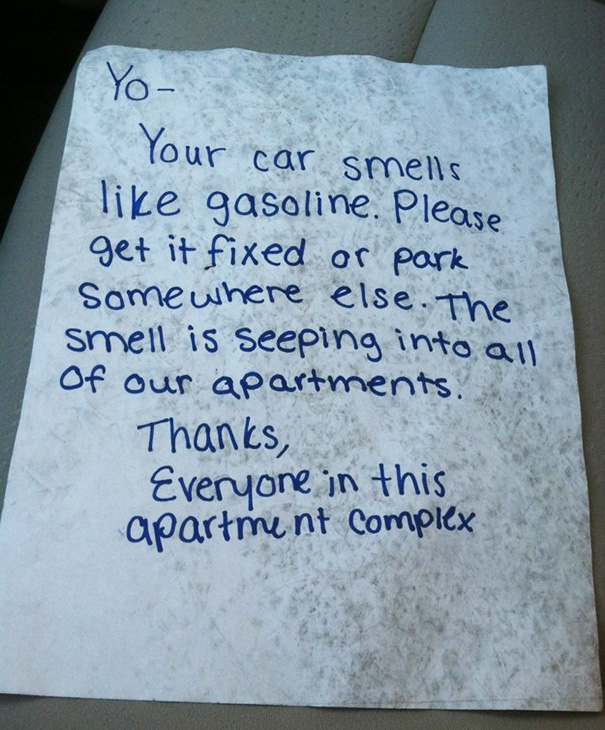 Yo-
Your car smells
like gasoline. Please
get it fixed or park
somewhere else. The
smell is seeping into all
of our apartments.
Thanks,
Everyone in this
apartment complex